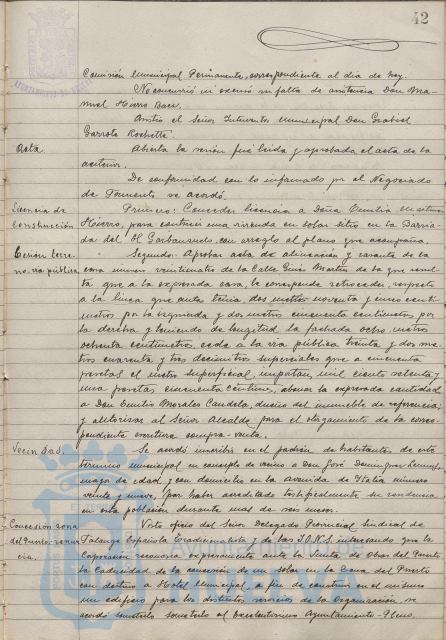 42
Comisión Municipal Permanente, correspondiente al día de hoy.
No concurrió ni excusó su falta de asistencia Don Ma-
nuel Hierro Baez.
Asistió el Señor Interventor Municipal Don Gabriel
Garrote Rochette.
Acta. Abierta la sesión fué leída y aprobada el acta de la
anterior.
De conformidad con lo informado por el Negociado
de Fomento se acordó.
Licencia de Primero: Conceder licencia a Doña Emilia
construcción Hierro, para construir una vivienda en solar sito en la Barria-
da del H. Garbanzuelo, con arreglo al plano que acompaña.
Cesión terre- Segundo: Aprobar acta de alineación y rasante de la
no vía pública casa número veintinueve de la Calle Ginés Martín de la que resul-
ta que a la expresada casa, le corresponde retroceder, respecto
a la línea que antes tenía, dos metros noventa y cinco centí-
metros por la izquierda y dos metros cincuenta centímetros por
la derecha y teniendo de longitud la fachada ocho metros
ochenta centímetros, cede a la vía pública treinta y dos me-
tros cuarenta y tres decímetros superficiales que a cincuenta
pesetas el metro superficial, importan mil ciento setenta y
una pesetas cincuenta céntimos, abonar la expresada cantidad
a Don Emilio Morales Candela, dueño del inmueble de referencia;
y autorizar al Señor Alcalde, para el otorgamiento de la corres-
pondiente escritura compra-venta.
Vecindad. Se acordó inscribir en el padrón de habitantes de este
término municipal en concepto de vecino a Don José Domínguez
mayor de edad y con domicilio en la avenida de Italia número
veinte y nueve, por haber acreditado testificalmente su residencia
en esta población durante mas de seis meses.
Concesión zona Visto oficio del Señor Delegado Provincial Sindical de
del Puerto- Falange Española Tradicionalista y de las J.O.N.S. interesando que la
cia. Corporación reconozca expresamente ante la Junta de Obras del Puerto
la caducidad de la concesión de un solar en la Zona del Puerto
con destino a Hotel Municipal, a fin de construir en el mismo
un edificio para los distintos servicios de la Organización, se
acordó someterlo al Excelentísimo Ayuntamiento-Pleno.